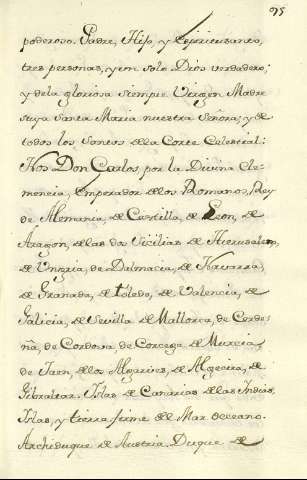 95
poderoso. Padre, Hijo, y Espiritusanto,
tres personas, y un solo Dios verdadero;
y de la gloriosa siempre Virgen Madre
suya Santa Maria nuestra Señora; y de
todos los Santos de la Corte Celestial:
Nos Don Carlos, por la Divina Cle-
mencia, Emperador de los Romanos, Rey
de Alemania, de Castilla, de Leon, de
Aragon, de las dos Sicilias de Hierusalem,
de Ungria, de Dalmacia, de Navarra,
de Granada, de toledo, de Valencia, de
Galicia, de Sevilla de Mallorca, de Cerde-
ña, de Cordova de Corcega de Murcia,
de Jaen de los Algarves, de Algecira, de
Gibraltar. Islas de Canarias de las Indias,
Islas, y tierra firme del Mar Occeano.
Archiduque de Austria. Duque de